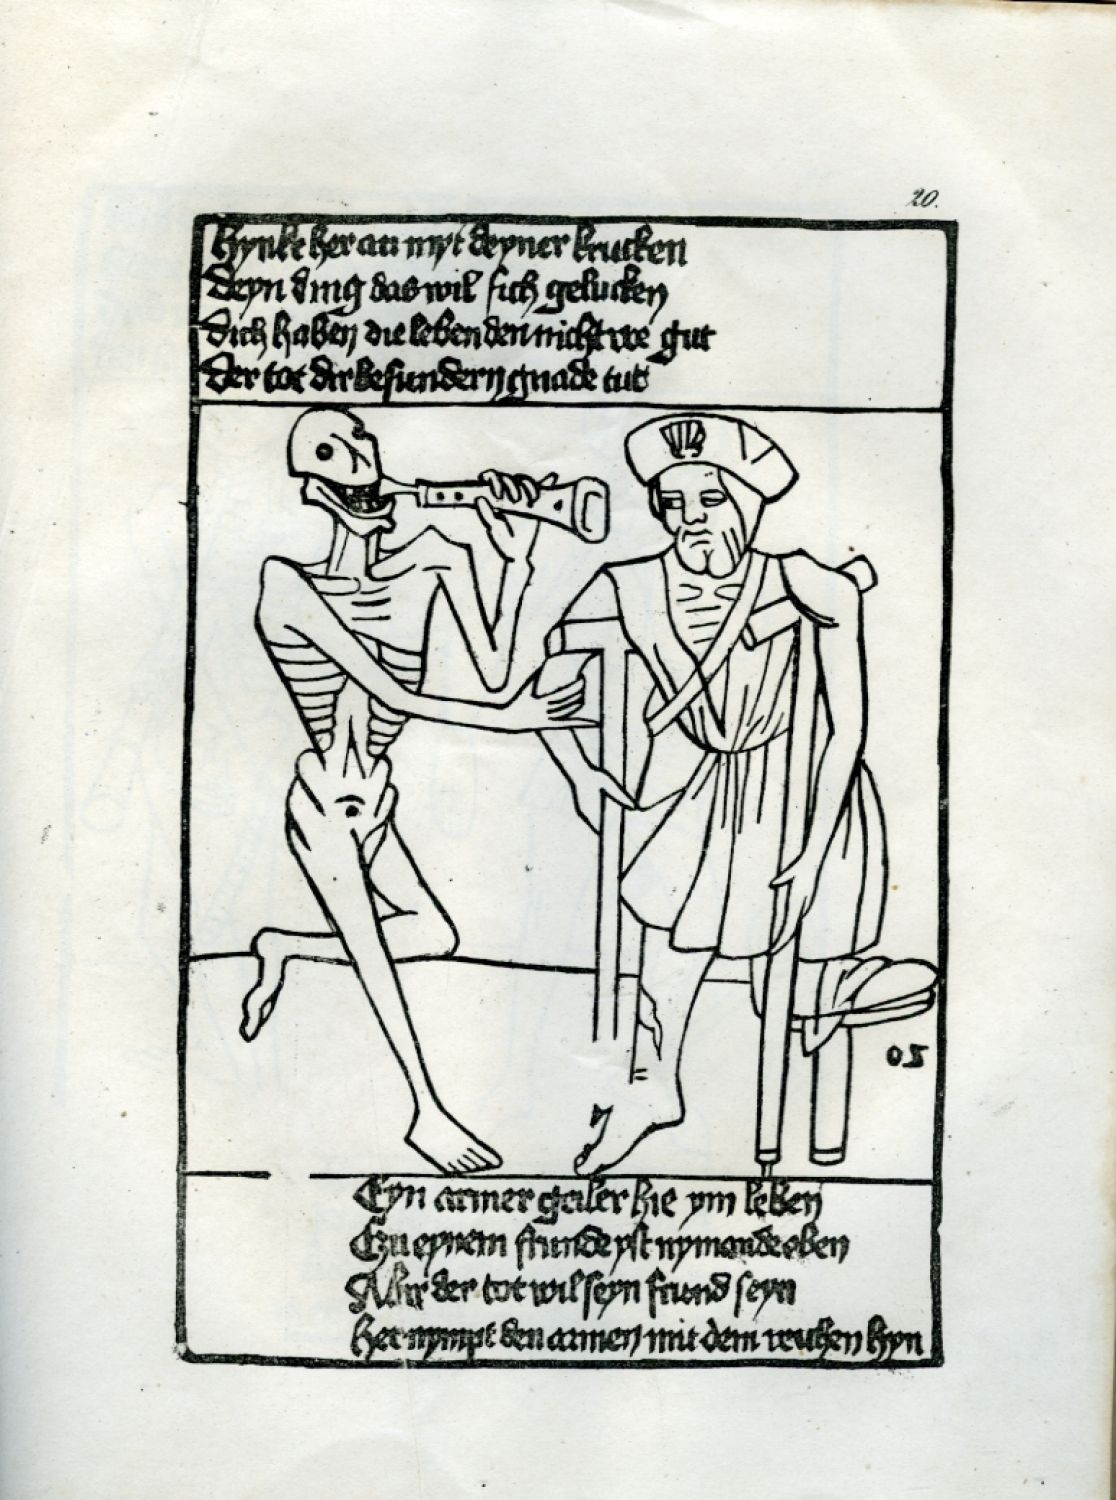 20.
Hynke her an myt deyner krucken
Deyn ding das wil sich gelucken
Dich haben die lebenden nicht vor gut
Der tot dir besundern gnade tut
20
Eyn armer geiler hie ym leben
Czu eynem frunde yst nymande eben
Aber der tot wil seyn frund seyn
Her nympt den armen mit dem reichen hyn